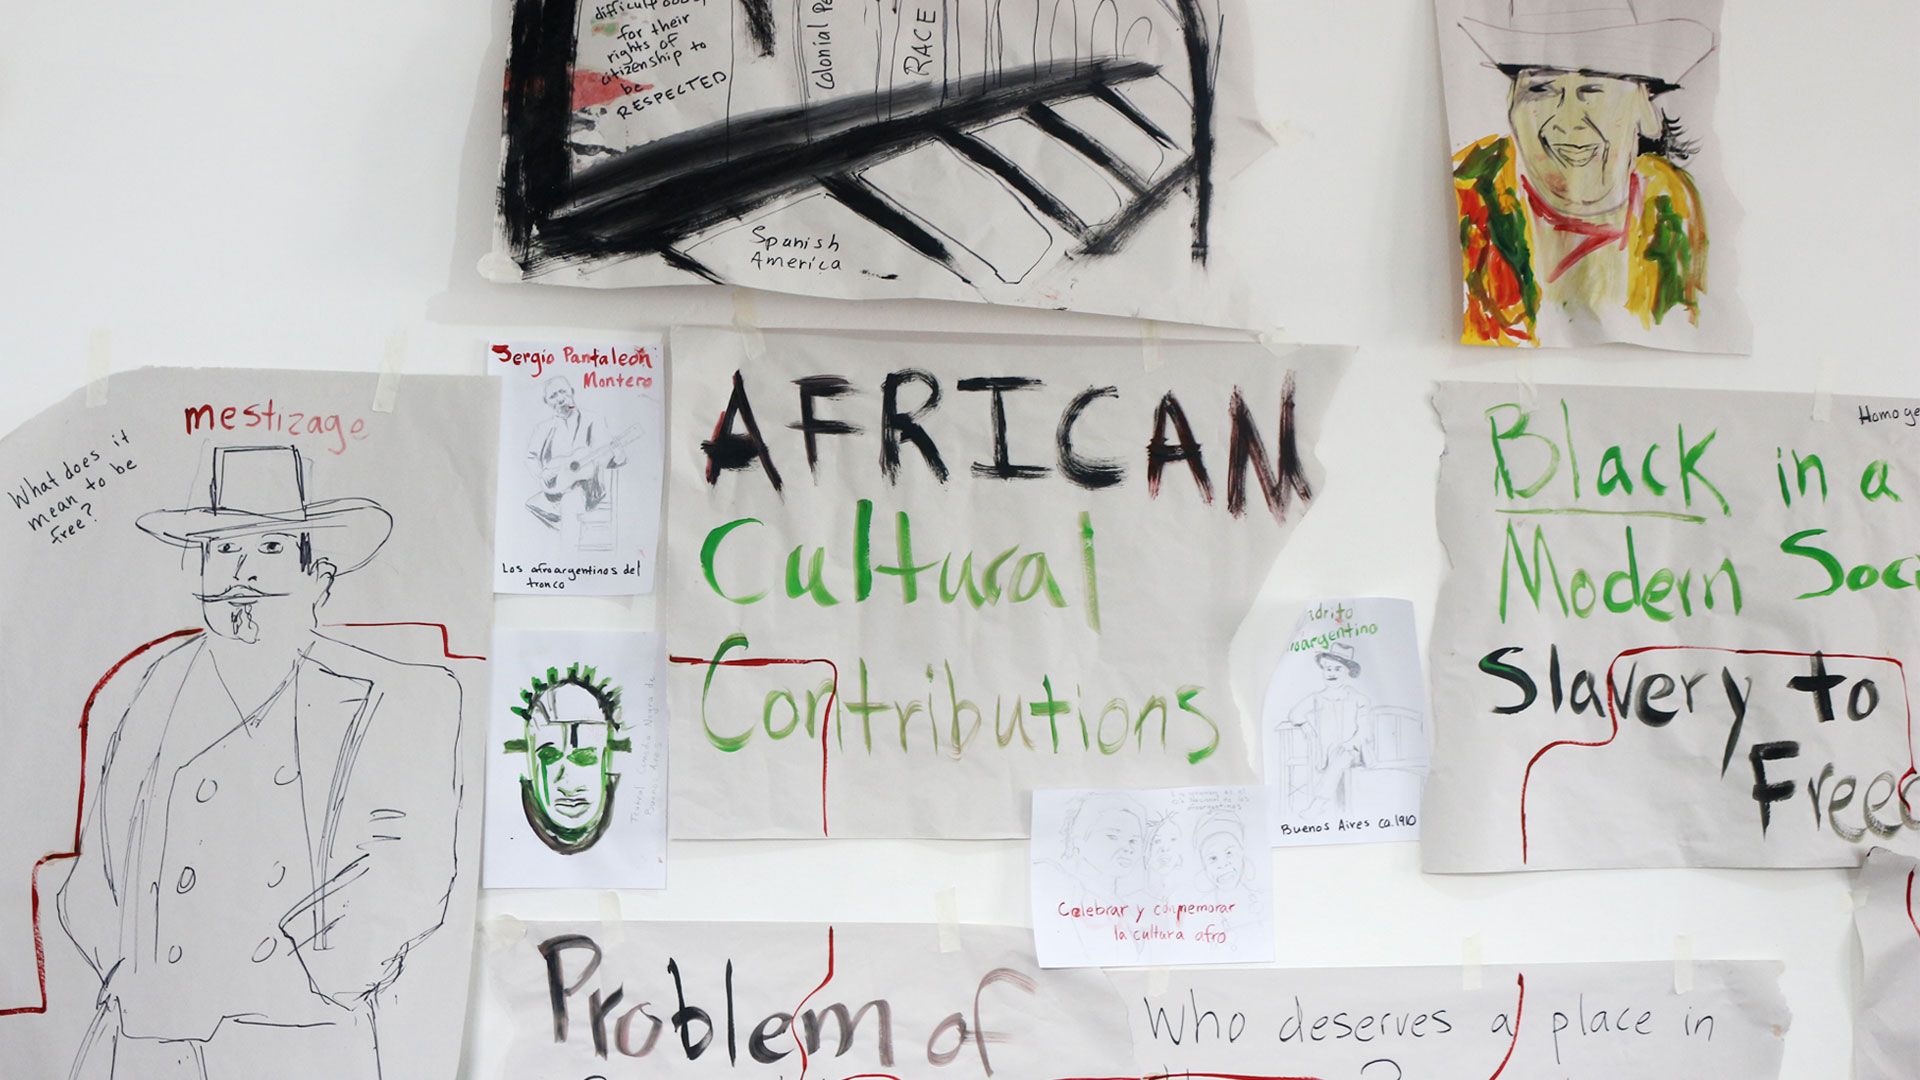 for their
rights of
citizenship to
be
RESPECTED
Colonial
RACE
Spanish
America
mestizage
What does it
mean to be
free?
Sergio Pantaleón
Montero
Los afroargentinos del
tronco
AFRICAN
Cultural
Contributions
Buenos Aires ca.1910
Celebrar y conmemorar
la cultura afro
Black in a
Modern
Slavery to
Problem of
Who deserves a place in